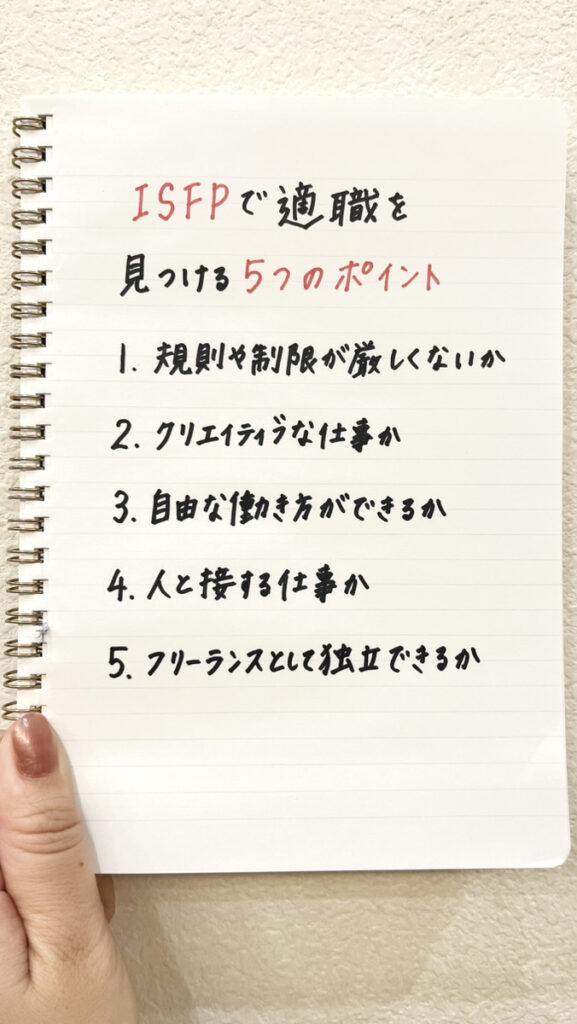 ISFPで適職を
見つける5つのポイント
1. 規則や制限が厳しくないか
2. クリエイティブな仕事か
3. 自由な働き方ができるか
4. 人と接する仕事か
5. フリーランスとして独立できるか